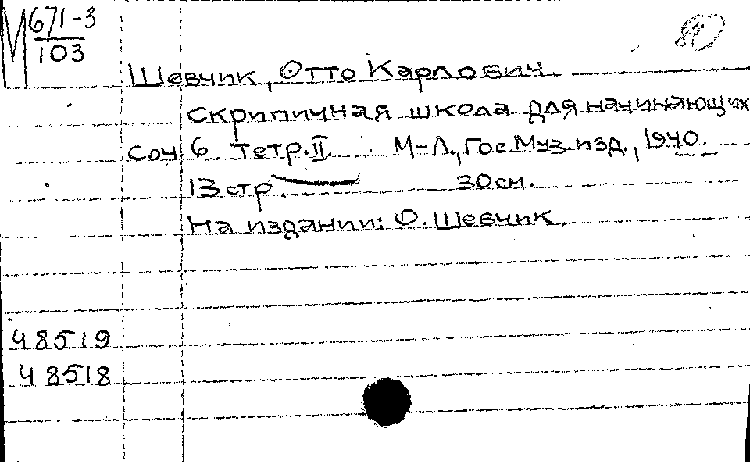 М 671-3
103
Шевчик, Отто Карлович.
Скрипичная школа для начинающих
Соч 6 тетр. II. М-Л., Гос. Муз. изд., 1940.
13 стр. 30 см.
На издании: О. Шевчик.
48519
48518